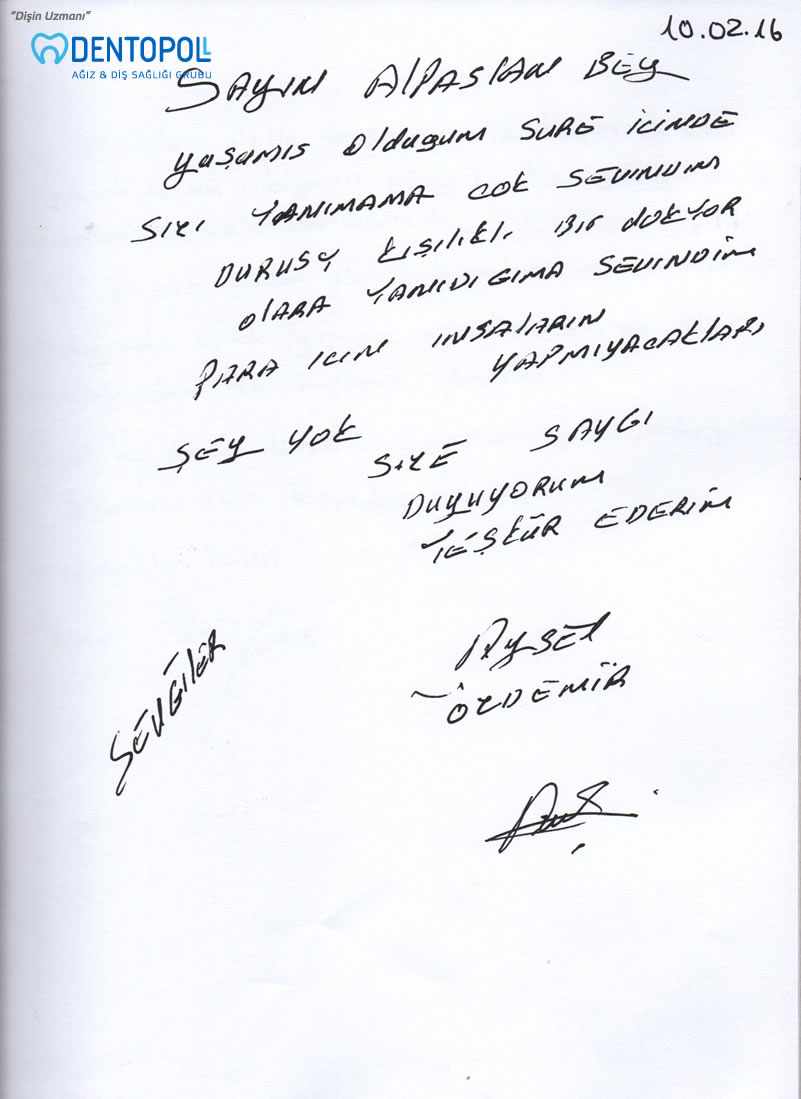 "Dişin Uzmanı"
DENTOPOLL
AĞIZ & DİŞ SAĞLIĞI GRUBU
10.02.16
SAYIN AlPASlAN BEY
YAŞAMIS OlDUGUM SURE ICINDE
SIZI TANIMAMA COK SEVINDIM
DURUST KIŞILIKLI BIR DOKTOR
OlARA TANIDIGIMA SEVINDIM
PARA ICIN INSALARIN
YAPMIYACAKLARI
ŞEY YOK
SIZE SAYGI
DUYUYORUM
TEŞKÜR EDERIM
SEVGILER
AYSEL
ÖZDEMIR